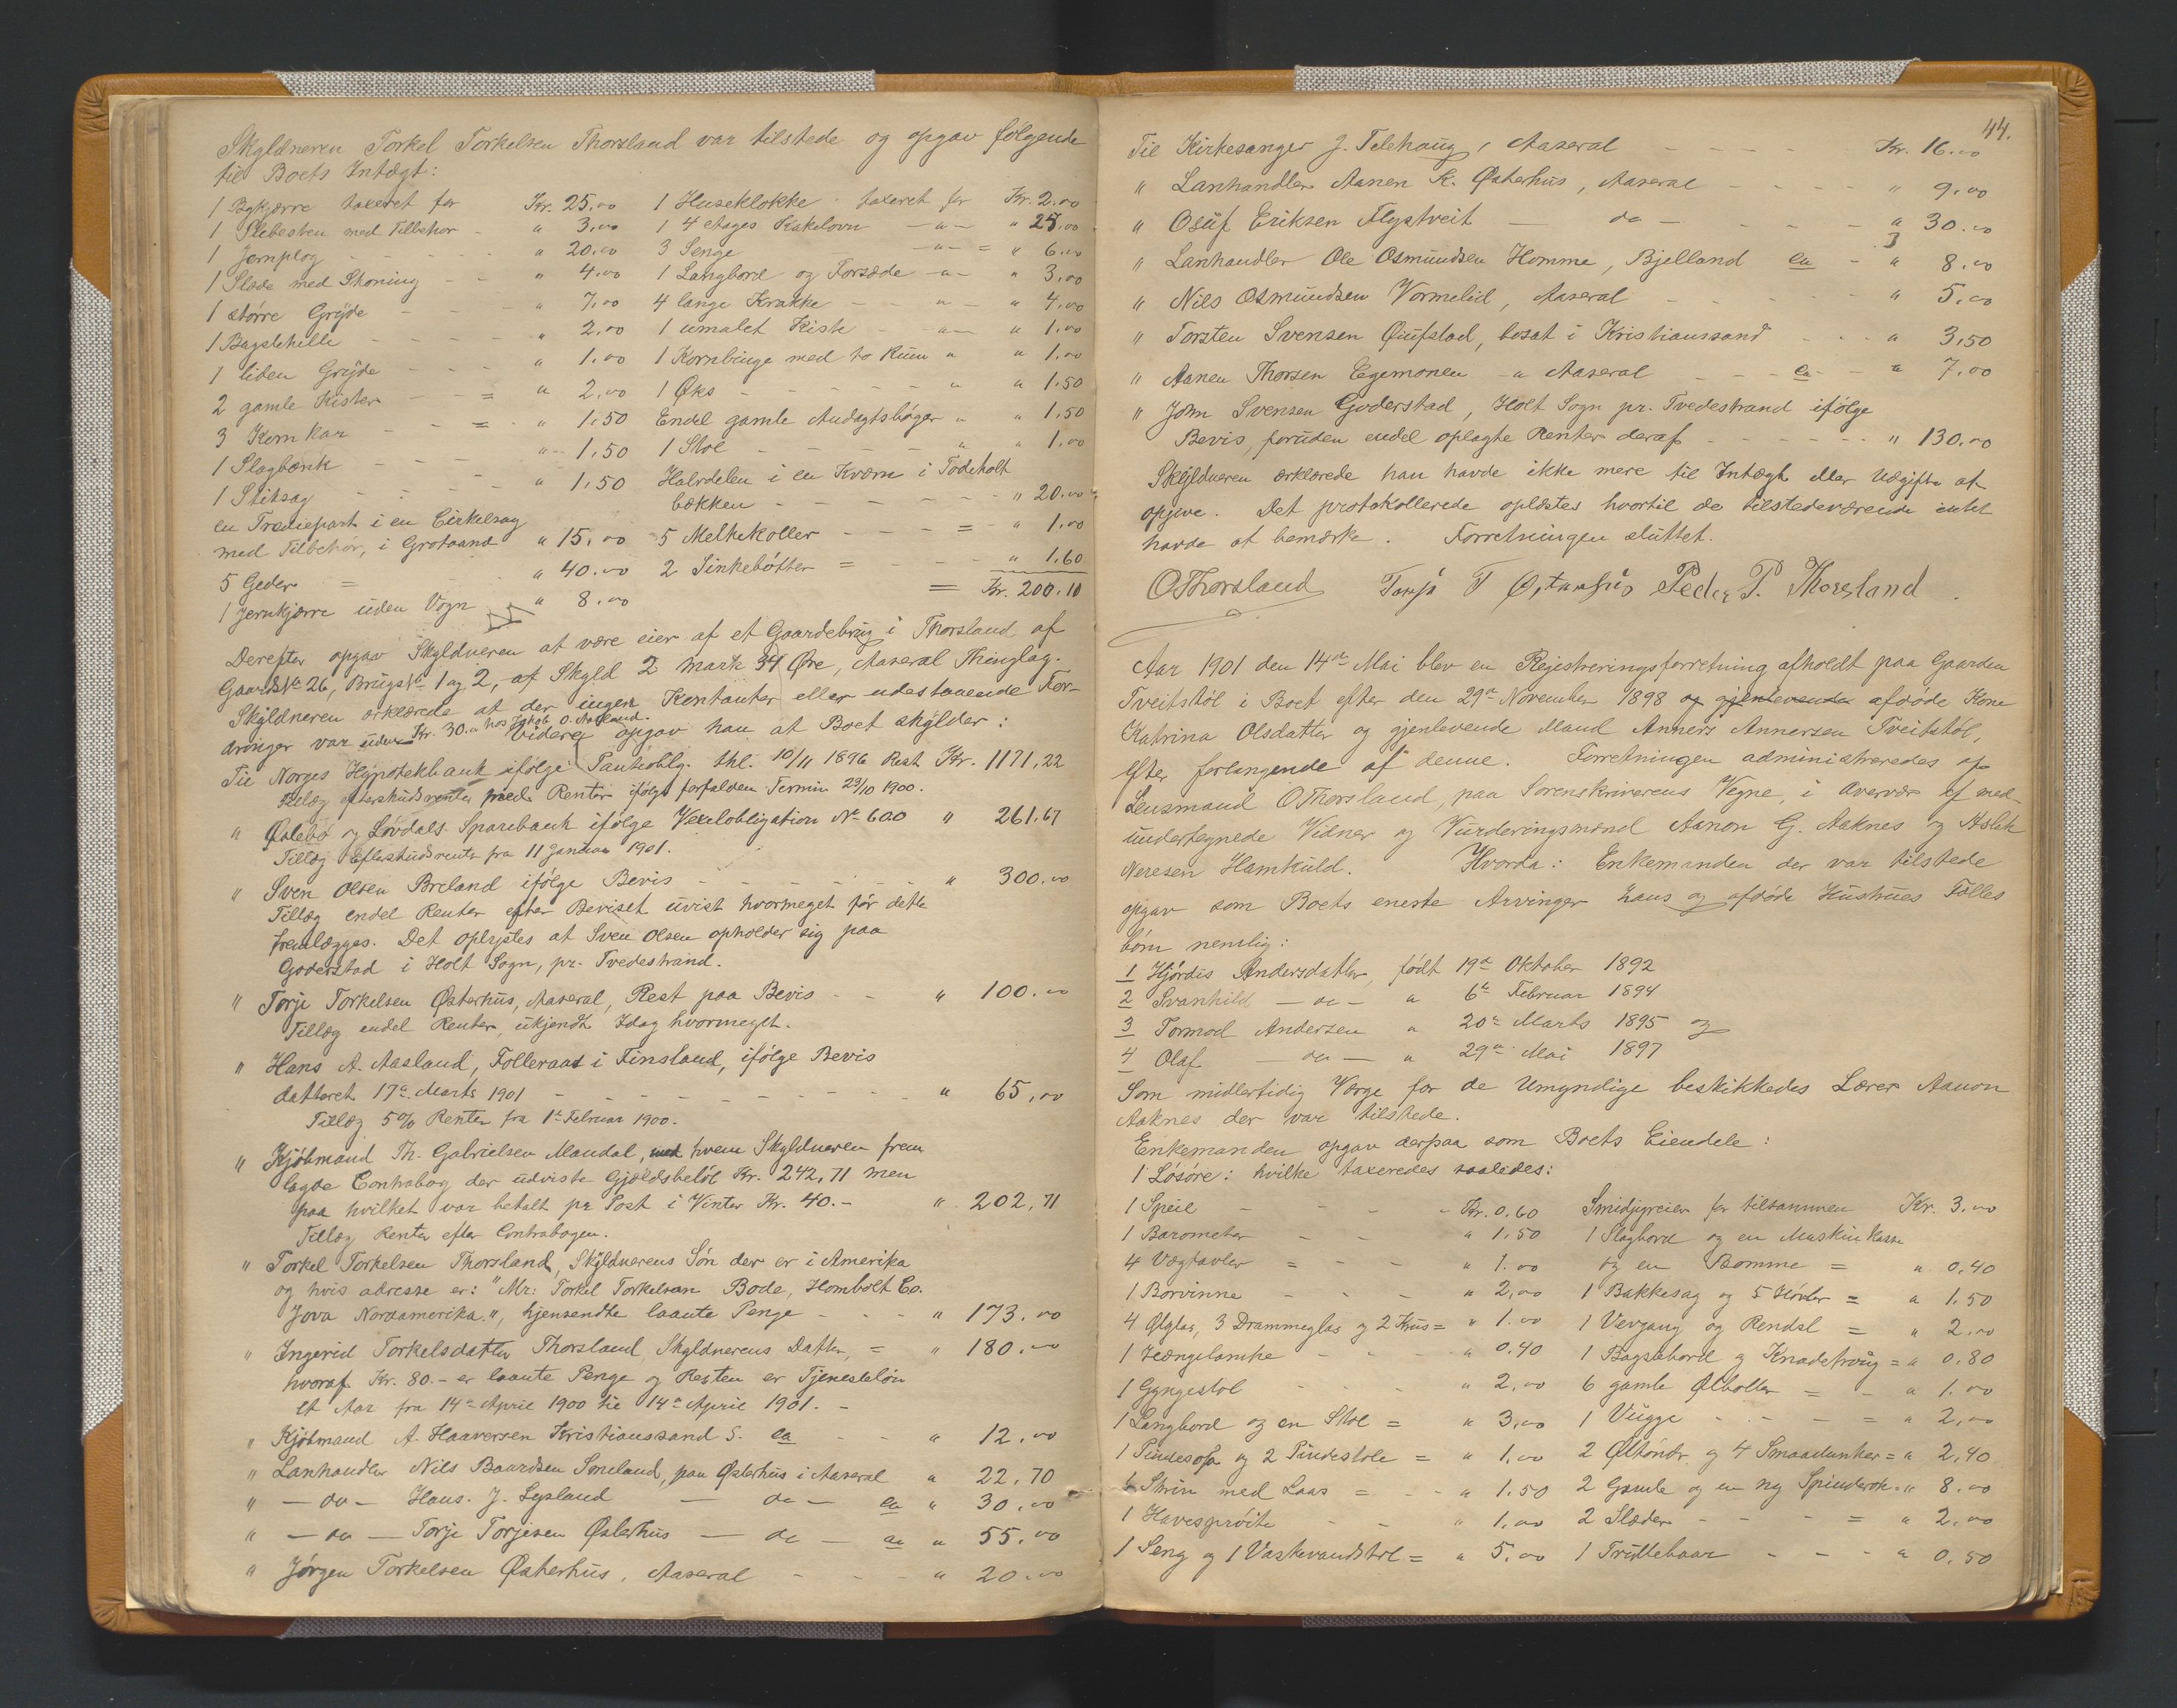 Skyldneren Torkel Torkelsen Thorsland var tilstede og opgav følgende
til Boets Intægt:
1 Bykjærre taxeret for Kr. 25.00 1 Huseklokke taxeret for Kr. 2.00
1 Slebesten med Tilbehør - " 3.00 1 4 etages Kakelovn -"- " 25.00
1 Jernplog - - - " 20.00 3 Senge -"- = " 6.00
1 Slæde med Skoning - - " 4.00 1 Langbord og Forsæde -"- " 3.00
1 større Gryde - - " 7.00 4 lange Krakke - - " - " 4.00
1 Bagstehelle - - - " 2.00 1 umalet Kiste - -"- " 1.00
1 liden Gryde - - - " 1.00 1 Kornbinge med to Rum " " 1.00
2 gamle Kister - - = " 2.00 1 Øks - - - - - " " 1.50
3 Kornkar - - = - " 1.50 Endel gamle Andagtsbøger " " 1.50
1 Slagbænk - - - " 1.50 1 Stol - - - - " " 1.00
1 Stiksag - - - - " 1.50 Halvdelen i en Kværn i Todeholt
en Trediepart i en Cirkelsag bækken - - - - - - " 20.00
med Tilbehør, i Grotaand " 15.00 5 Melkekoller - - - = - " 1.00
5 Geder = - - " 40.00 2 Sinkebøtter = - - - " 1.60
1 Jernkjærre uden Vogn " 8.00 = Kr. 200.10
Derefter opgav Skyldneren at være eier af et Gaardebrug i Thorsland af
Gaards№ 26, Brugs№ 1 og 2, af Skyld 2 mark 34 Øre, Aaseral Thinglag.
Skyldneren erklærede at der ingen Kontanter eller udestaaende For-
dringer var uden Kr. 30.00 hos Jakob O. Aasland. Videre opgav han at Boet skylder:
Til Norges Hypotekbank ifølge Panteoblg. thl. 10/11 1896 Rest Kr. 1171,22
Tillæg efterskudsrenter med Renter ifølge forfalden Termin 23/10 1900.
" Øslebø og Løvdals Sparebank ifølge Vexelobligation № 600 " 261.67
Tillæg Efterskudsrenter fra 11 Januar 1901.
" Sven Olsen Breland ifølge Bevis - - - - - - " 300.00
Tillæg endel Renter efter Beviset uvist hvormeget før dette
fremlægges. Det oplystes at Sven Olsen opholder sig paa
Goderstad i Holt Sogn, pr. Tvedestrand.
" Torje Torkelsen Østerhus, Aaseral, Rest paa Bevis - - " 100.00
Tillæg endel Renter, ukjendt Idag hvormeget.
" Hans A. Aasland, Folleraas i Finsland, ifølge Bevis
datteret 17de Marts 1901 - - - - - - - - " 65,00
Tillæg 5% Renter fra 1ste Februar 1900.
" Kjøbmand Th. Gabrielsen Mandal, med hvem Skyldneren frem
lagde Contrabog der udviste Gjældsbeløb Kr. 242,71 men
paa hvilket var betalt pr Post i Vinter Kr. 40.- " 202,71
Tillæg Renter efter Contrabogen.
" Torkel Torkelsen Thorsland, Skyldnerens Søn der er i Amerika
og hvis adresse er: "Mr: Torkel Torkelson Bode, Hombolt Co.
Jova Nordamerika.", hjemsendte laante Penge - - - " 173.00
" Ingerid Torkelsdatter Thorsland Skyldnerens Datter, = " 180.00
hvoraf Kr. 80.- er laante Penge og Resten er Tjenesteløn
et Aar fra 14de April 1900 til 14de April 1901. -
" Kjøbmand A. Haaversen Kristianssand S. ca - - " 12.00
" Lanhandler Nils Baardsen Smeland, paa Østerhus i Aaseral " 22.70
" - do - Hans. J. Lysland - do - ca " 30.00
" - do - Torje Torjesen Østerhus - do - ca " 55.00
" Jørgen Torkelsen Østerhus, Aaseral - - - " 20.00
44.
Til Kirkesanger J. Telehaug, Aaseral - - - - Kr. 16.00
" Lanhandler Aanen K. Østerhus, Aaseral - - - - " 9.00
" Osuf Eriksen Flystveit - do - - - - " 30.00
" Lanhandler Ole Osmundsen Homme, Bjelland ca - " 8.00
" Nils Osmundsen Vormelid, Aaseral - - - - - " 5.00
" Torsten Svensen Quifstad, bosat i Kristianssand - - - " 3,50
" Aanen Thorsen Egemonen - " Aaseral - - - ca - - " 7.00
" John Svensen Goderstad, Holt Sogn pr. Tvedestrand ifølge
Bevis, foruden endel oplagte Renter deraf - - - - - - " 130.00
Skyldneren ærklærede han havde ikke mere til Intægt eller Udgift at
opgive. Det protokollerede oplæstes hvortil de tilstedeværende intet
havde at bemærke. Forretningen sluttet.
OThorsland Torje T Østerhus Peder P. Thorsland
Aar 1901 den 14de Mai blev en Rejistreringsforretning afholdt paa Gaarden
Tveitstøl i Boet efter den 29de November 1898 og gjenlevende afdøde Kone
Katrina Olsdatter og gjenlevende Mand Anners Annersen Tveitstøl,
efter forlangende af denne. Forretningen administreredes af
Lensmand OThorsland, paa Sorenskriverens Vegne, i Overvær af med-
undertegnede Vidner og Vurderingsmænd Aanon G. Aaknes og Aslak
Neresen Hamkuld. Hvorda: Enkemanden der var tilstede
opgav som Boets eneste Arvinger hans og afdøde Hustrues Fælles
børn nemlig:
1 Hjørdis Andersdatter, født 19de Oktober 1892
2 Svanhild - do - " 6te Februar 1894
3 Tormod Andersen " 20de Marts 1895 og
4 Olaf - do - " 29de Mai 1897
Som midlertidig Værge for de Umyndige beskikkedes Lærer Aanon
Aaknes der var tilstede.
Enkemanden opgav derpaa som Boets Eiendele:
1 Løsøre: hvilke taxeredes saaledes:
1 Speil - - - - Kr. 0.60 Smidjgreier for tilsammen Kr. 3.00
1 Barometer - - " 1.50 1 Slagbord og en Maskin Kasse
4 Vægtavler = - - " 1.00 og en Bomme = " 0.40
1 Borvinne - - - " 2,00 1 Bakkesag og 5 Høvler = " 1.50
4 Ølglas, 3 Drammeglas og 2 Krus = " 1.00 1 Vevgang og Rendel = " 2.00
1 Hængelampe - - - " 0.40 1 Bagstebord og Knadetroug = " 0.80
1 Gyngestol - - - " 2,00 6 gamle Ølboller = - " 1.00
1 Langbord og en Stol = " 3,00 1 Vugge - - - = " 2,00
1 Pindesofa og 2 Pindestole = " 1,00 2 Øltønder og 4 Smaadunker = " 2,40
6 Skrin med Laas = - - " 1.50 2 Gamle og en ny Spinderok = " 8.00
1 Havesprøite - - " 1,00 2 Slæder - - - = " 2.00
1 Seng og 1 Vaskevandstol = " 5.00 1 Trillebaar - - - " 0.50